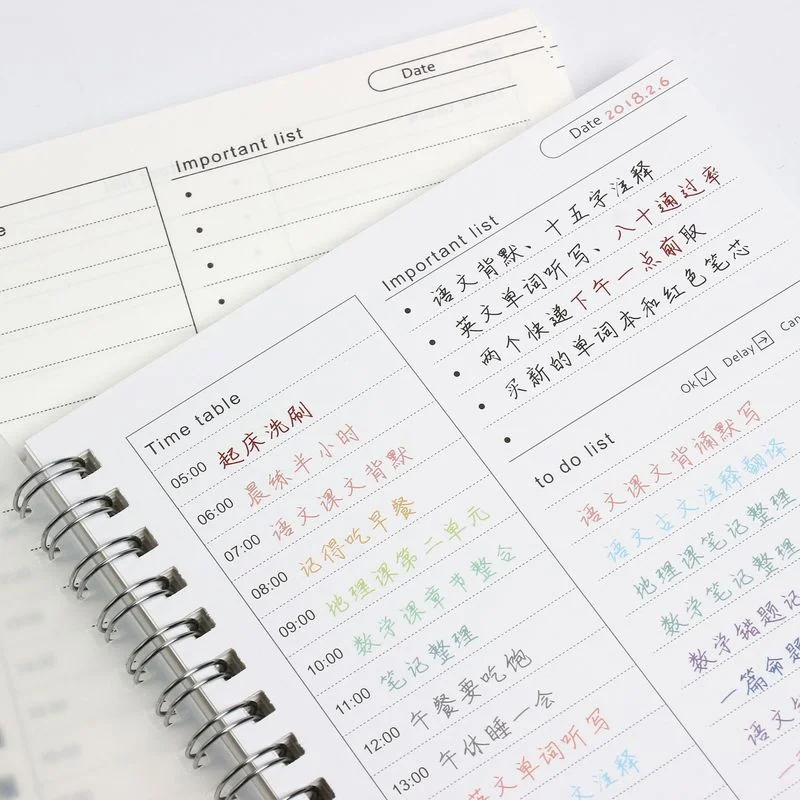 Date
Important list
e
Date 2018.2.6
Important list
• 语文背默、十五字注释
• 英文单词听写、八十通过率
• 两个快递下午一点前取
• 买新的单词本和红色笔芯
•
Ok Delay Can
Time table
05:00 起床洗刷
06:00 晨练半小时
07:00 语文课文背默
08:00 记得吃早餐
09:00 地理课第二单元
10:00 数学课章节整合
11:00 笔记整理
12:00 午餐要吃饱
13:00 午休睡一会
英文单词听写
文注释
to do list
语文课文背诵默写
语文古文注释翻译
地理课笔记整理
数学笔记整理
数学错题记
一篇命题
语文